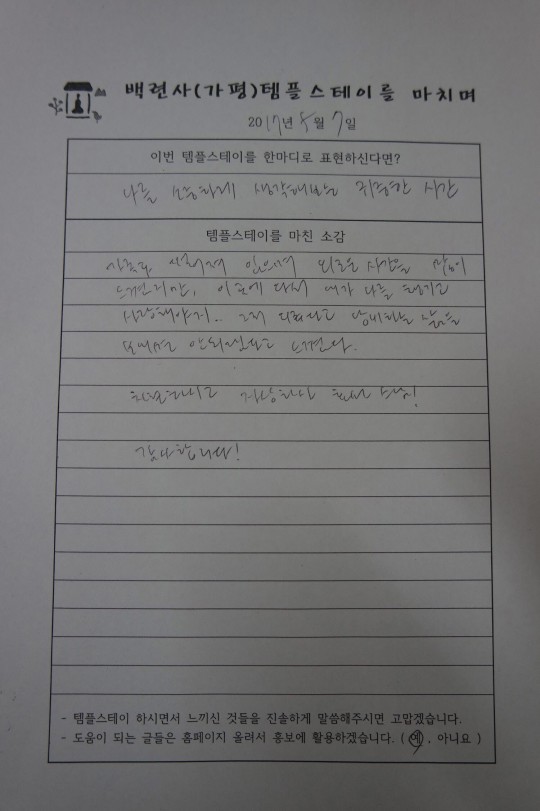 백련사(가평)템플스테이를 마치며
2017년 8월 7일
이번 템플스테이를 한마디로 표현하신다면?
나를 소중하게 생각해보는 귀중한 시간
템플스테이를 마친 소감
떨어져 있으면서 외로운 시간을 많이
느꼈지만, 이곳에 다시 내가 나를 챙기고
사랑해야지.. 그저 낭비하는 삶을
보내면 안되겠다고 느꼈다.
친절하시고 스님!
감사합니다!
- 템플스테이 하시면서 느끼신 것들을 진솔하게 말씀해주시면 고맙겠습니다.
- 도움이 되는 글들은 홈페이지 올려서 홍보에 활용하겠습니다. ( 예 , 아니요 )